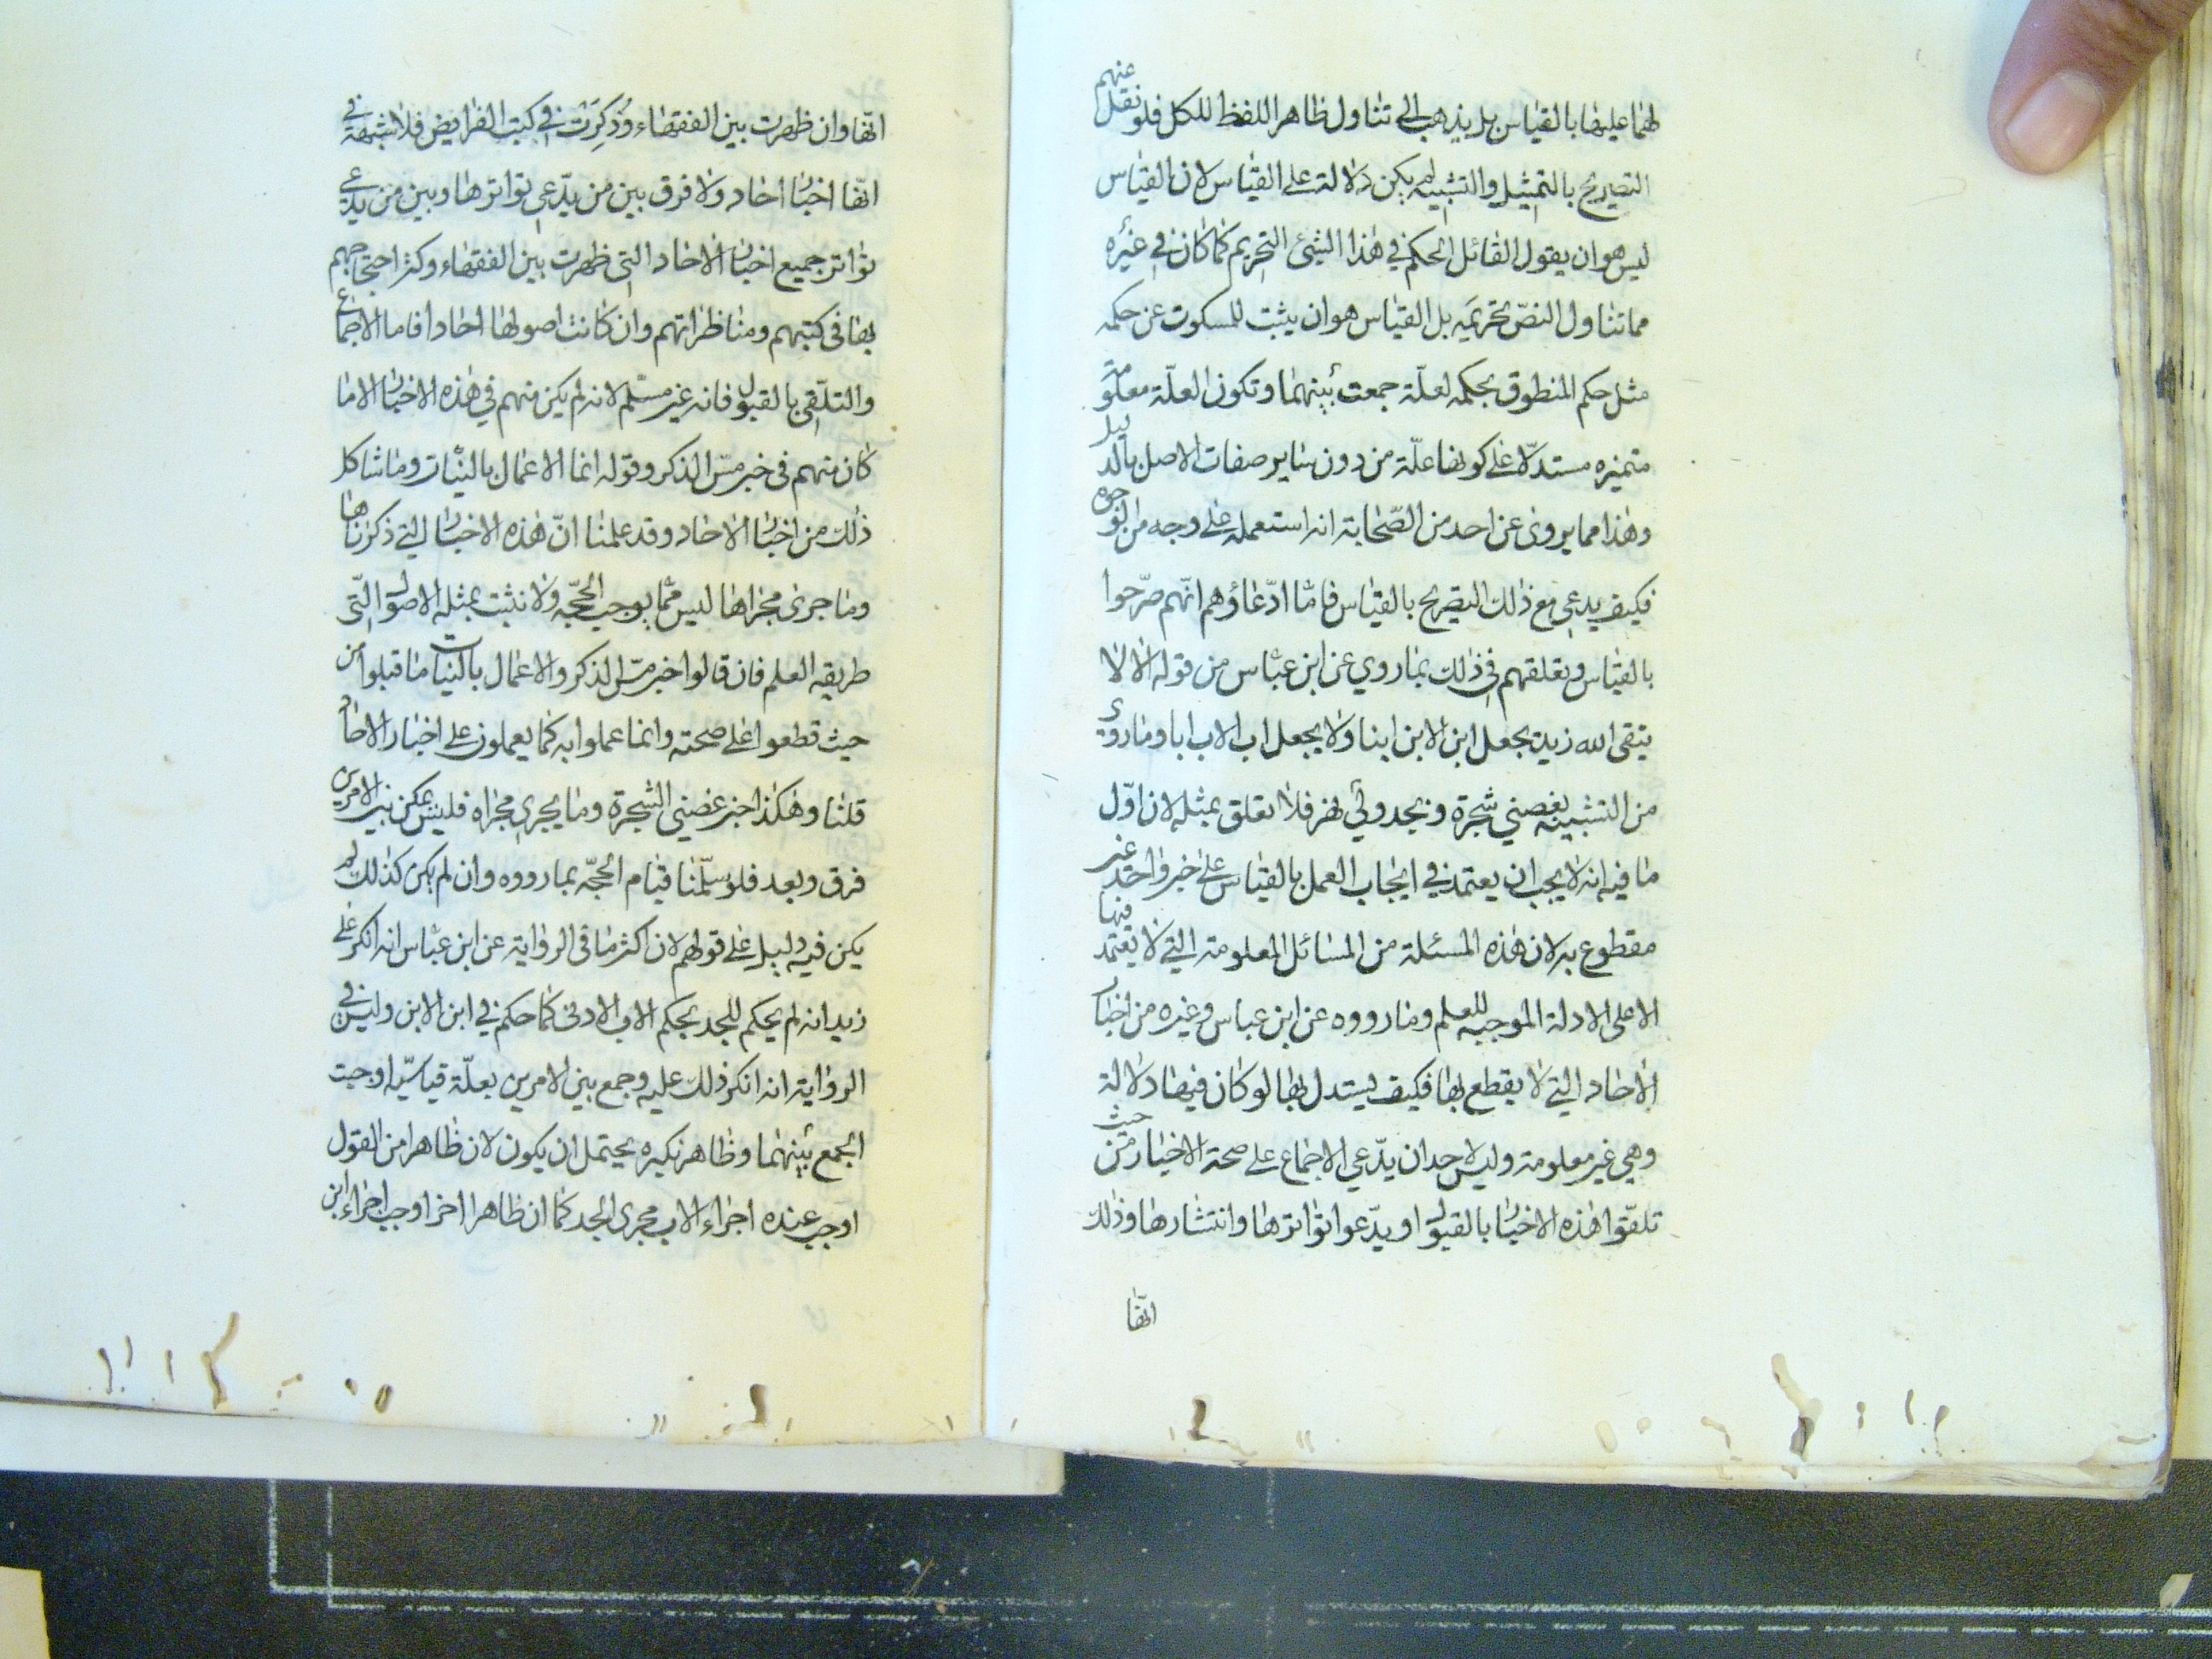 لهما عليها بالقياس بل يذهب الى تناول ظاهر اللفظ للكل فلو نقل عنهم
التصريح بالتمثيل والتشبيه لم يكن دلالة على القياس لان القياس
ليس هو ان يقول القائل الحكم في هذا الشئ التحريم كما كان في غيره
مما تناول النصّ تحريمه بل القياس هو ان يثبت للمسكوت عن حكمه
مثل حكم المنطوق بحكمه لعلّة جمعت بينهما وتكون العلّة معلومة
متميزه مستدلّا على كونها علّة من دون ساير صفات الاصل بالدليل
وهذا مما يروى عن احد من الصّحابة انه استعمله على وجه من الوجوه
فكيف يدعي مع ذلك التصريح بالقياس فامّا ادّعاؤهم انّهم صرّحوا
بالقياس وتعلقهم في ذلك بما روي عن ابن عبّاس من قوله الا لا
يتقى الله زيد يجعل ابن الابن ابنا ولا يجعل اب الاب ابا وما روى
من التشبيه بغصني شجرة وبجدولي نهر فلا تعلق بمثله لان اوّل
ما فيه انه لا يجب ان يعتمد في ايجاب العمل بالقياس على خبر واحد غير
مقطوع به لان هذه المسئلة من المسائل المعلومة التي لا يعتمد فيها
الا على الادلة الموجبه للعلم وما رووه عن ابن عباس وغيره من اخبار
الاحاد التي لا يقطع بها فكيف يستدل بها لو كان فيها دلالة
وهي غير معلومة وليس لاحد ان يدّعي الاجماع على صحة الاخبار من حيث
تلقّوا هذه الاخبار بالقبول او يدّعوا تواترها وانتشارها وذلك
انّها
انّها وان ظهرت بين الفقهاء وذُكِرَت في كتب الفرايض فلا شبهة في
انّها اخبار احاد ولا فرق بين من يدّعي تواترها وبين من يدّعي
تواتر جميع اخبار الاحاد التى ظهرت بين الفقهاء وكثر احتجاجهم
بها في كتبهم ومناظراتهم وان كانت اصولها احادا فاما الاجماع
والتلقّي بالقبول فانه غير مسلّم لانه لم يكن منهم في هذه الاخبار الا ما
كان منهم في خبر مسّ الذكر وقوله انما الاعمال بالنيّات وما شاكل
ذلك من اخبار الاحاد وقد علمنا انّ هذه الاخبار التي ذكرناها
وما جرى مجراها ليس ممّا يوجب الحجّه ولا نثبت بمثله الاصول التّي
طريقه العلم فان قالوا خبر مسّ الذكر والاعمال بالنيات ما قبلوا من
حيث قطعوا على صحته وانما عملوا به كما يعملون على اخبار الاحاد
قلنا وهكذا خبر غصني الشجرة وما يجري مجراه فليس يمكن بين الامرين
فرق وبعد فلو سلّمنا قيام الحجّه بما رووه وان لم يكن كذلك لم
يكن فيه دليل على قولهم لان اكثر ما في الرواية عن ابن عبّاس انه انكر على
زيد انه لم يحكم للجد بحكم الاب الادنى كما حكم في ابن الابن وليس في
الرواية انه انكر ذلك عليه وجمع بين الامرين بعلّة قياسّيه اوجبت
الجمع بينهما وظاهر نكيره يحتمل ان يكون لان ظاهرا من القول
اوجب عنده اجراء الاب مجرى الجد كما ان ظاهرا اخر اوجب اجراء ابن